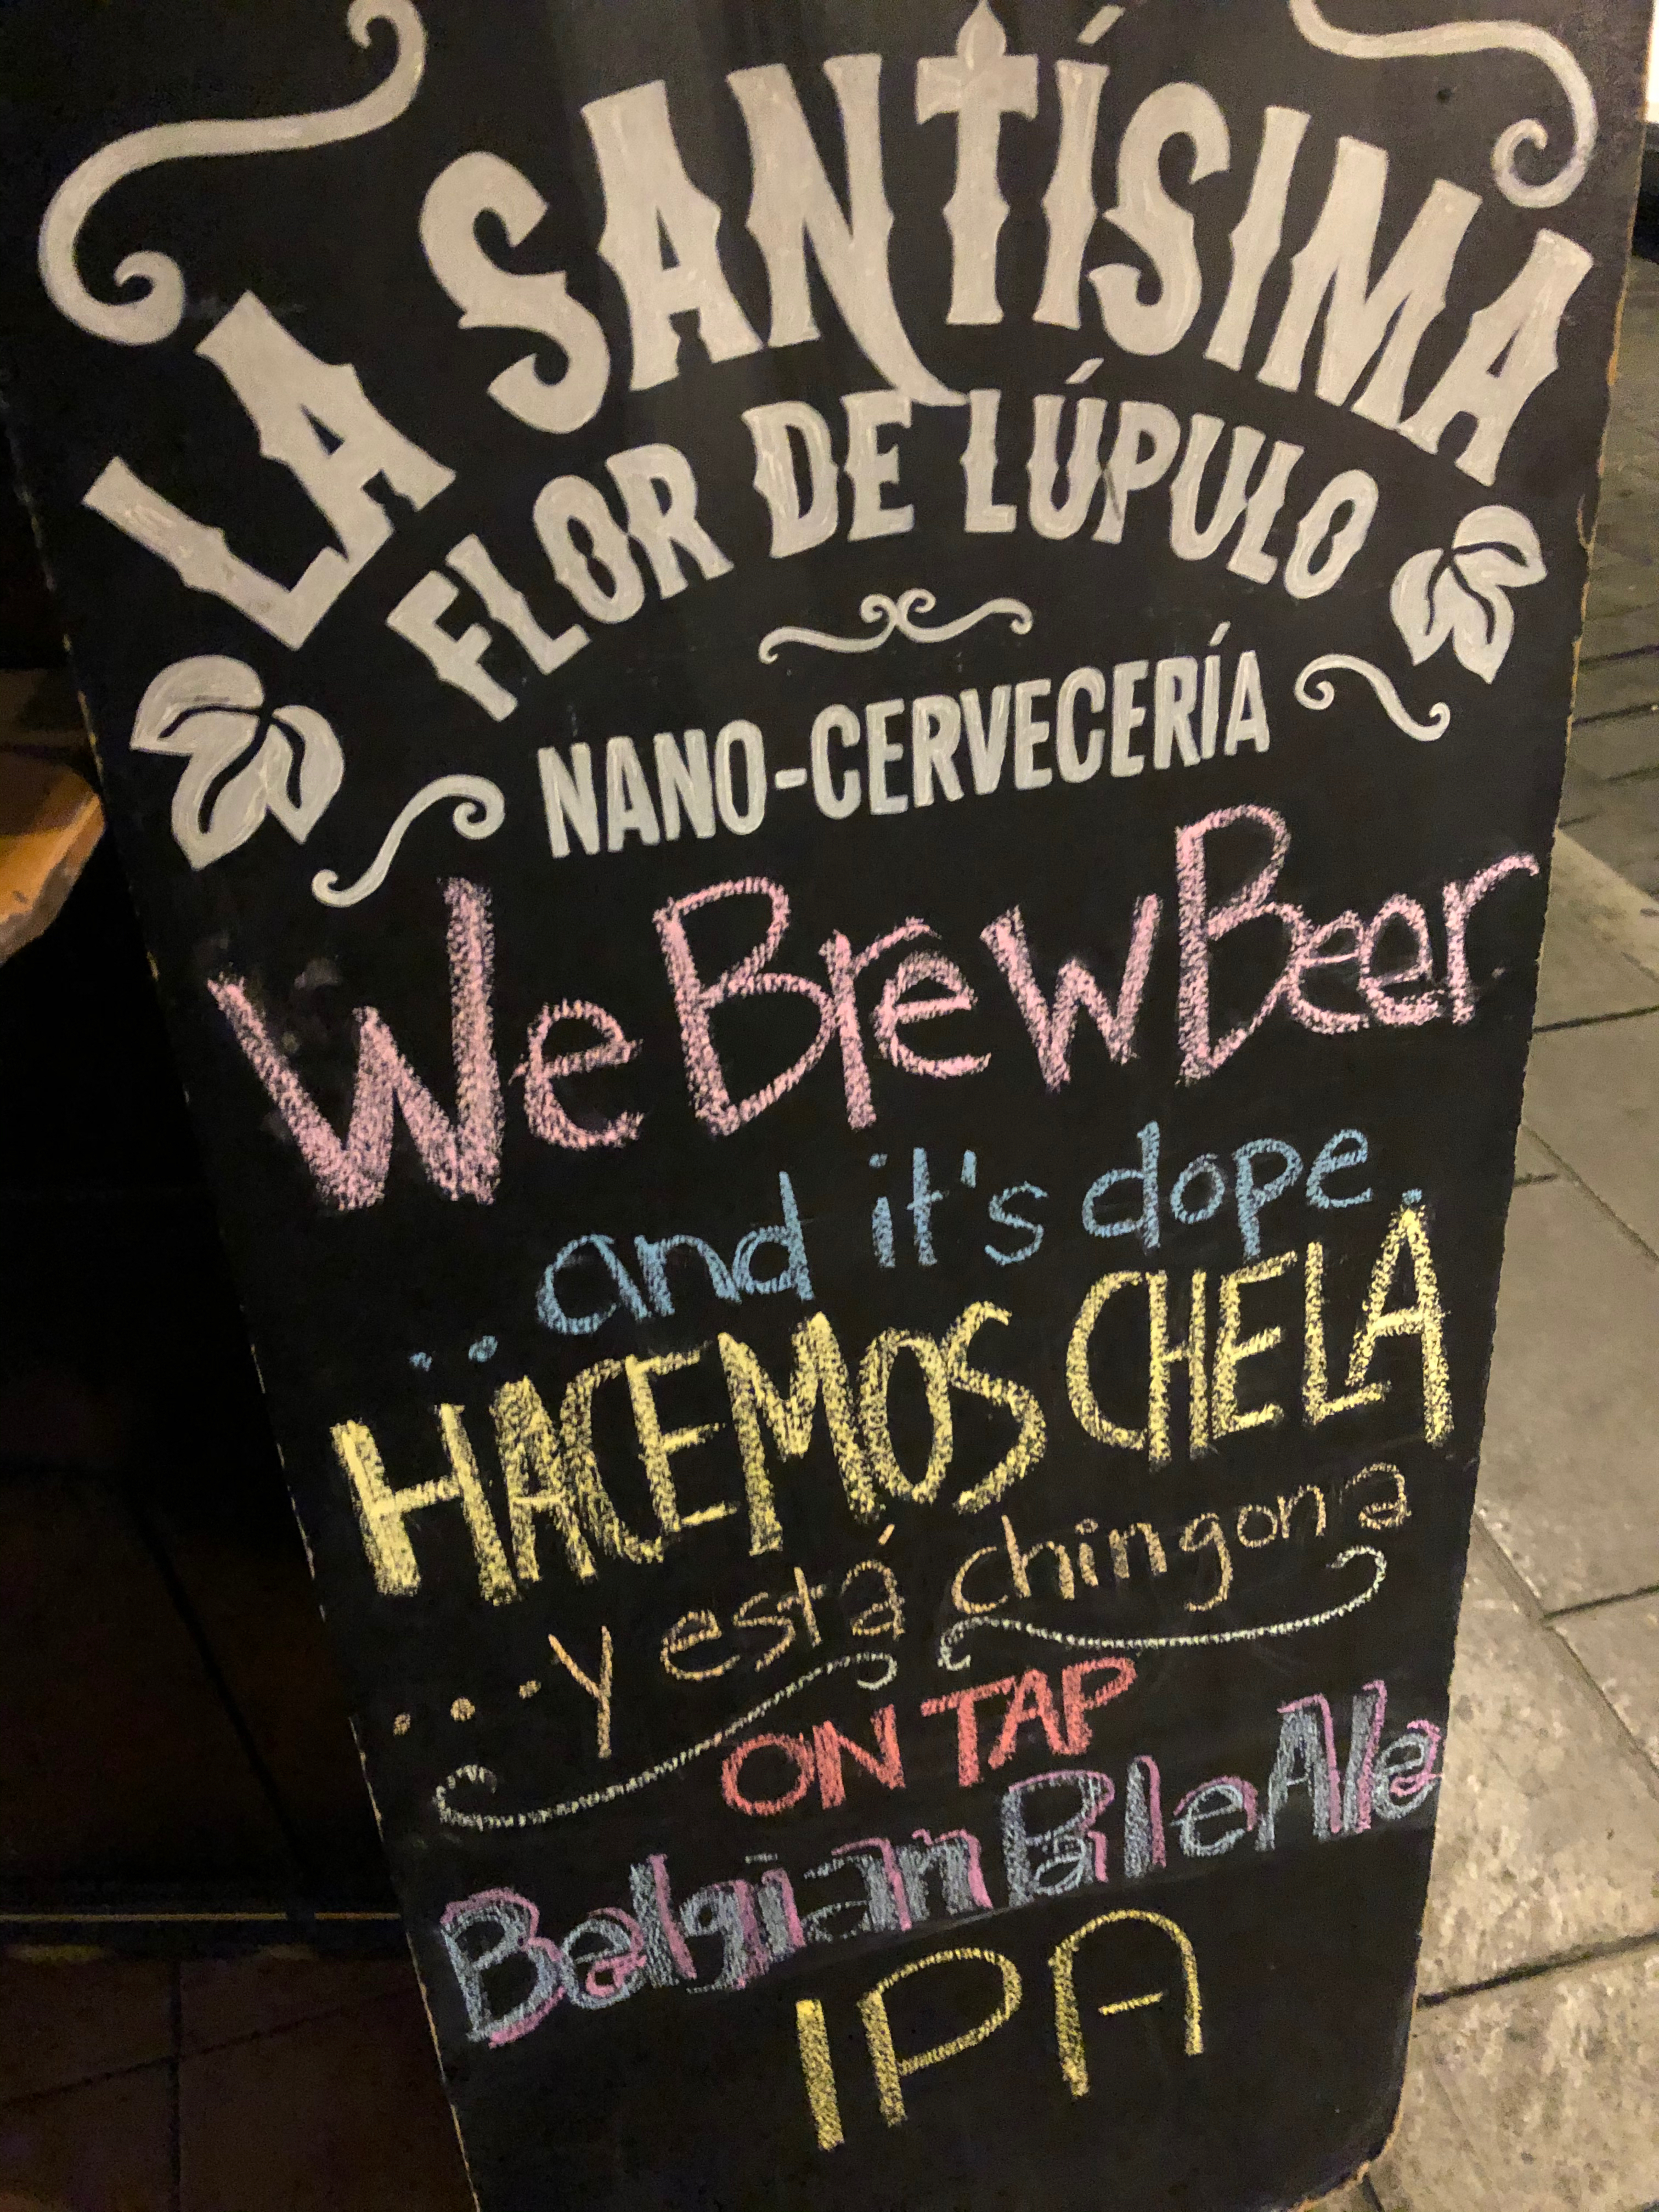 LA SANTÍSIMA
FLOR DE LÚPULO
NANO-CERVECERÍA
We Brew Beer
.. and it's dope.
HACEMOS CHELA
... y está chingona
ON TAP
Belgian Pale Ale
IPA